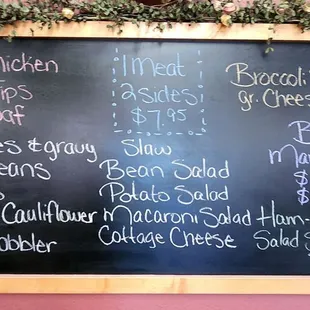 hicken
ips
af
es & gravy
eans
Cauliflower
obbler
1 Meat
2 Sides
$7.95
Slaw
Bean Salad
Potato Salad
Macaroni Salad
Cottage Cheese
Broccoli
gr. Chees
B
Ma
$
$
Ham-
Salad S